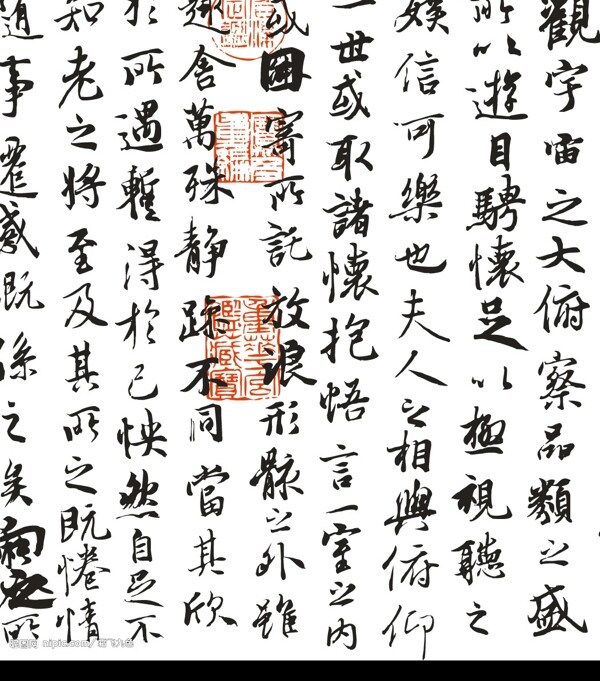 觀宇宙之大俯察品類之盛
所以遊目騁懷足以極視聽之
娛信可樂也夫人之相與俯仰
一世或取諸懷抱悟言一室之內
或因寄所託放浪形骸之外雖
趣舍萬殊静躁不同當其欣
於所遇暫得於己怏然自足不
知老之將至及其所之既惓情
隨事遷感慨係之矣向之所
昵图网 nipic.com/